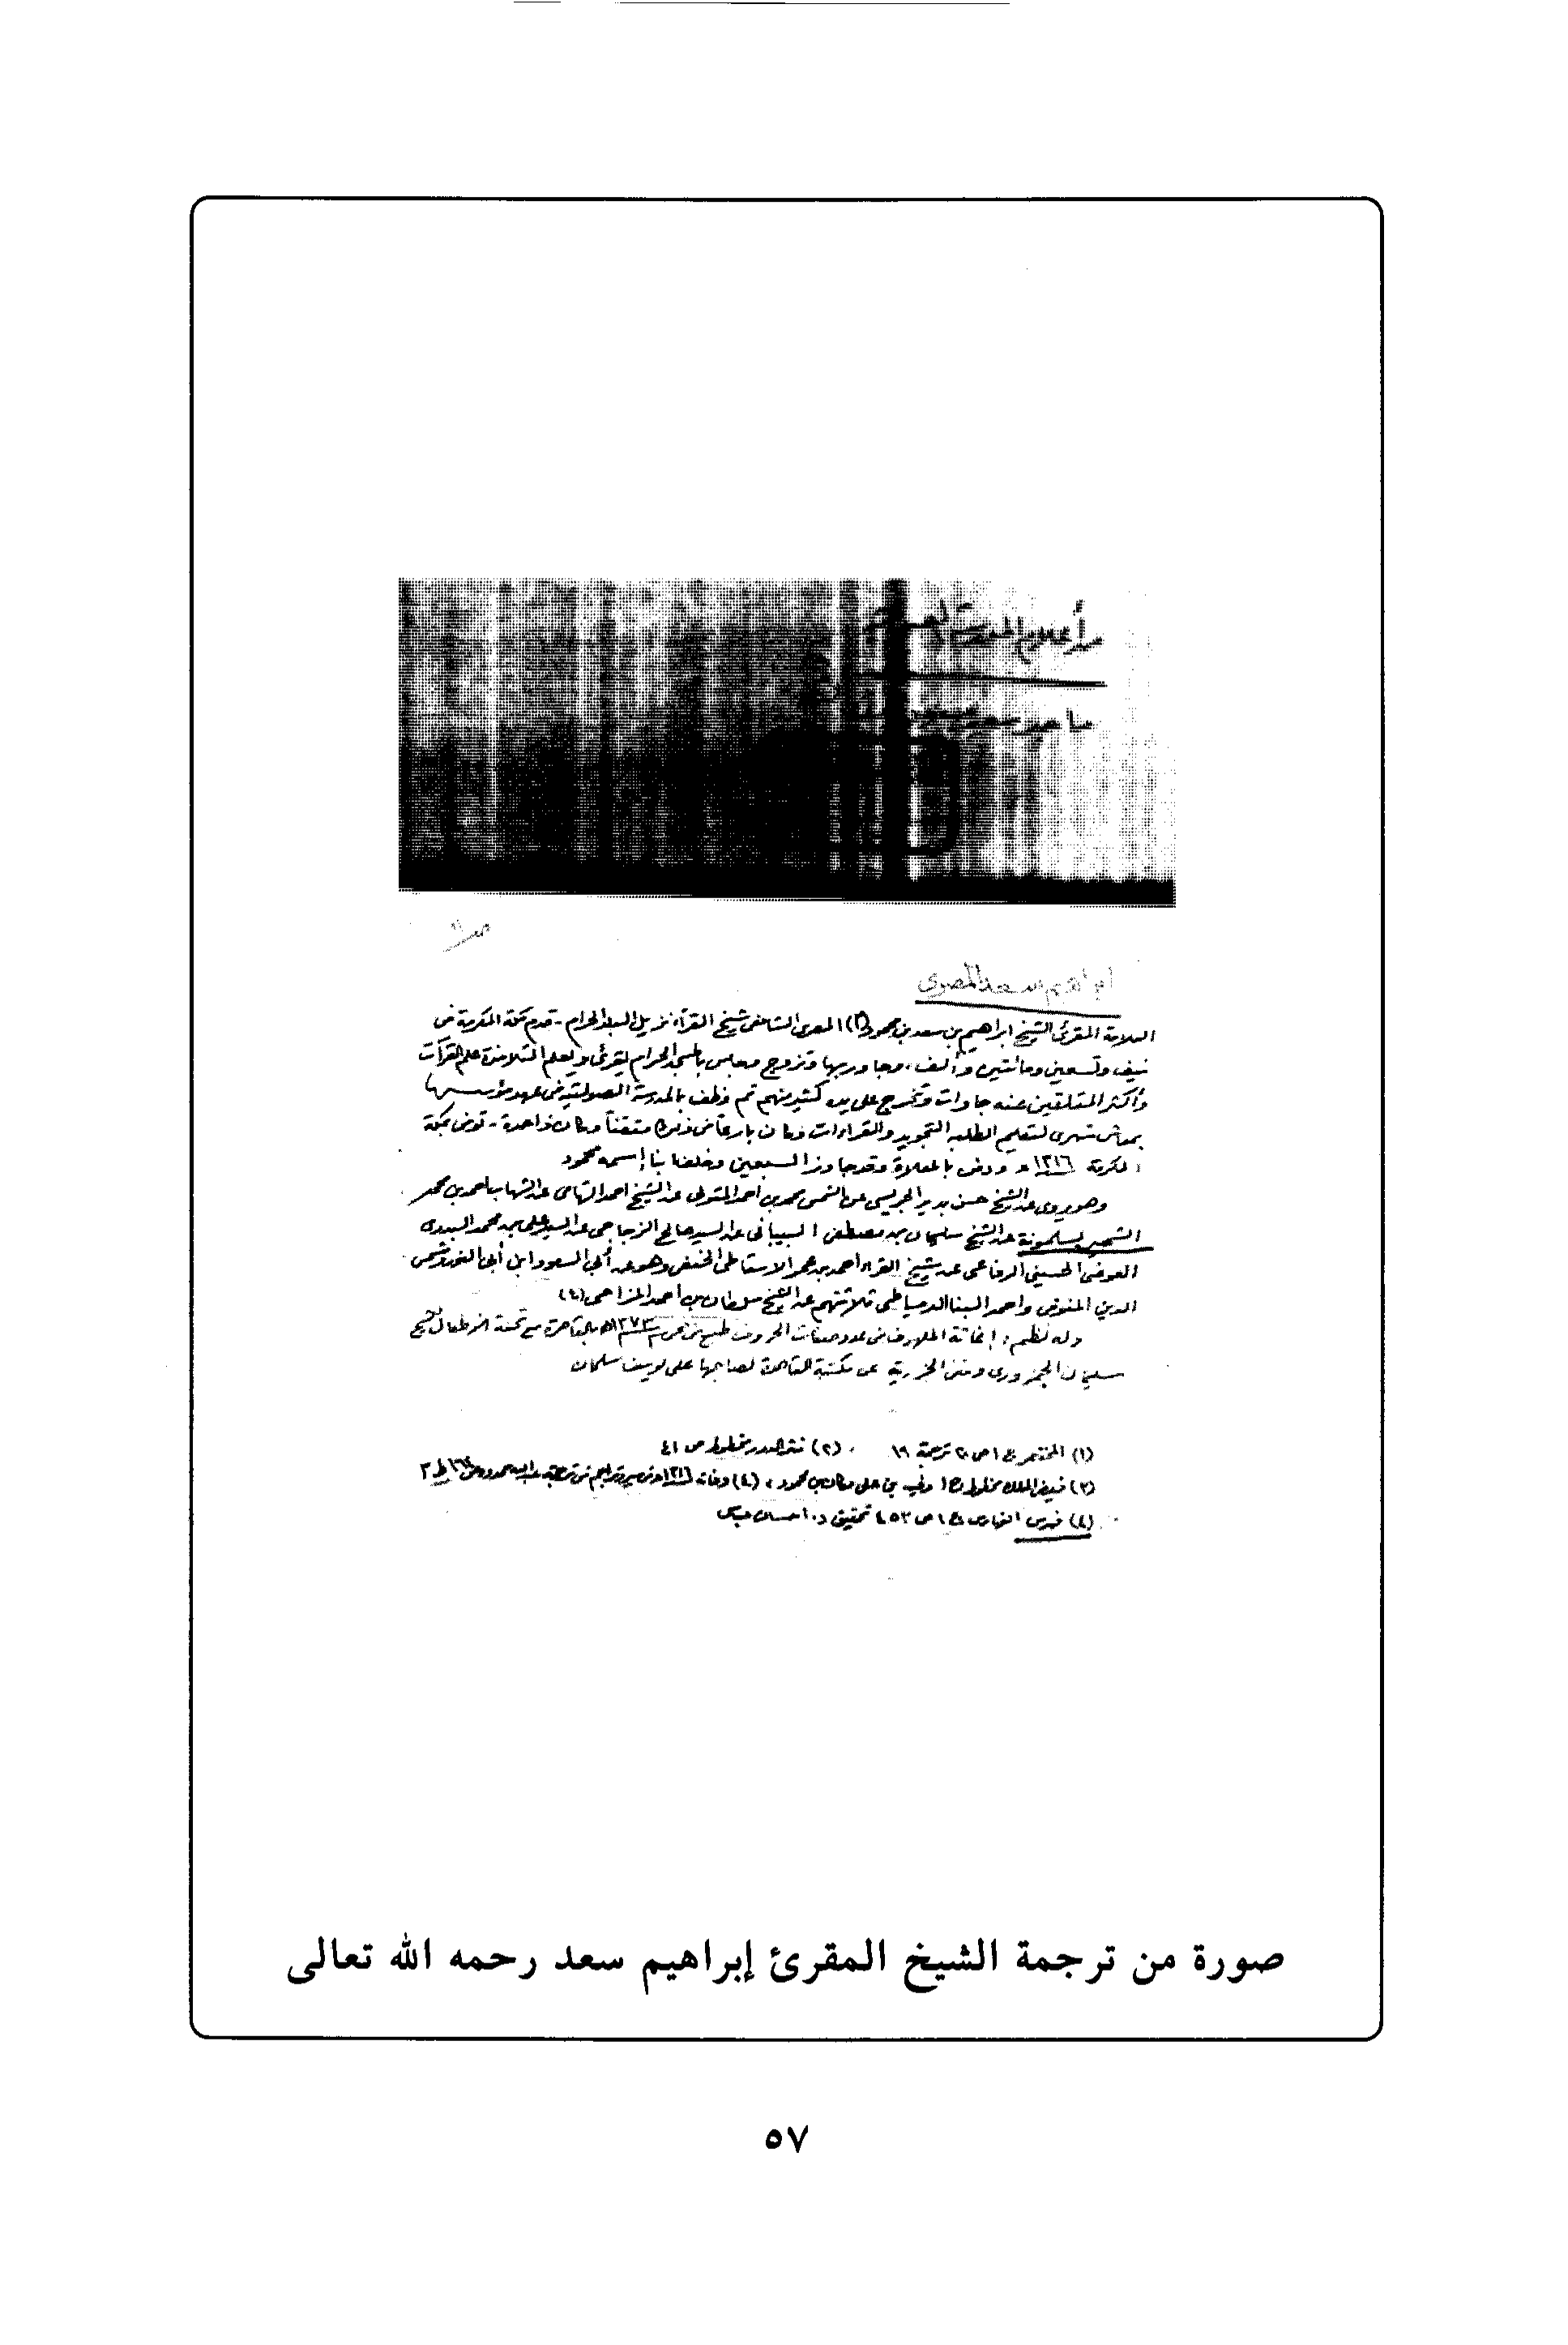 من أعلام المدرسة
ماجد سعيد
ابراهيم سعد المصري
العلامة المقرئ الشيخ ابراهيم بن سعد بن محمود(٢) المصري الشافعي شيخ القراء نزيل البلد الحرام - قدم مكة المكرمة في
نيف وتسعين ومائتين وألف، وجاور بها وتزوج وجلس بالمسجد الحرام يقرئ ويعلم التلامذة علم القرآت
وأكثر المتلقين عنه جاوات وتخرج على يده كثير منهم ثم وظف بالمدرسة الصولتية في عهد مؤسسها
بمعاش شهري لتعليم الطلبة التجويد والقراءات وكان بارعا في ذلك متقنا وكان ذا حدة - توفي بمكة
المكرمة ١٣١٦ هـ ودفن بالمعلاة وقد جاوز السبعين وخلف ابنا إسمه محمود
وهو يروي عن الشيخ حسن بدير الجريسي عن الشمس محمد بن احمد المتولي عن الشيخ احمد التهامي عن الشهاب احمد بن محمد
الشهير بسلمونة عن الشيخ سليمان بن مصطفى البيباني عن السيد صالح الزجاجي عن السيد علي بن محمد البدوي
العوضي الحسيني الرفاعي عن شيخ القراء احمد بن عمر الاسقاطي الحنفي وهو عن أبي السعود ابن أبي النور وشمس
الدين المنوفي واحمد البنا الدمياطي ثلاثتهم عن الشيخ سلطان بن احمد المزاحي(٤)
وله نظم: إغاثة الملهوف في عدد صفات الحروف طبع في ١٣٧٣هـ بالقاهرة مع تحفة الأطفال للشيخ
سليمان الجمزوري ومتن الجزرية عن مكتبة القاهرة لصاحبها علي يوسف سليمان
(١) المختصر ج١ ص ٢٠ ترجمة ١٩ ، (٢) نثر الدرر مخطوط ص ٤١
(٣) فيض الملك مخطوط ج١ وفيه بن علي وكان بن محمود، (٤) وفاته ١٣١٦هـ من سير تراجم في ترجمة عبدالله حمدوه ط ٣
(٤) فهرس الفهارس ج١ ص ٤٥٣ تحقيق د. احسان عباس
صورة من ترجمة الشيخ المقرئ إبراهيم سعد رحمه الله تعالى
٥٧